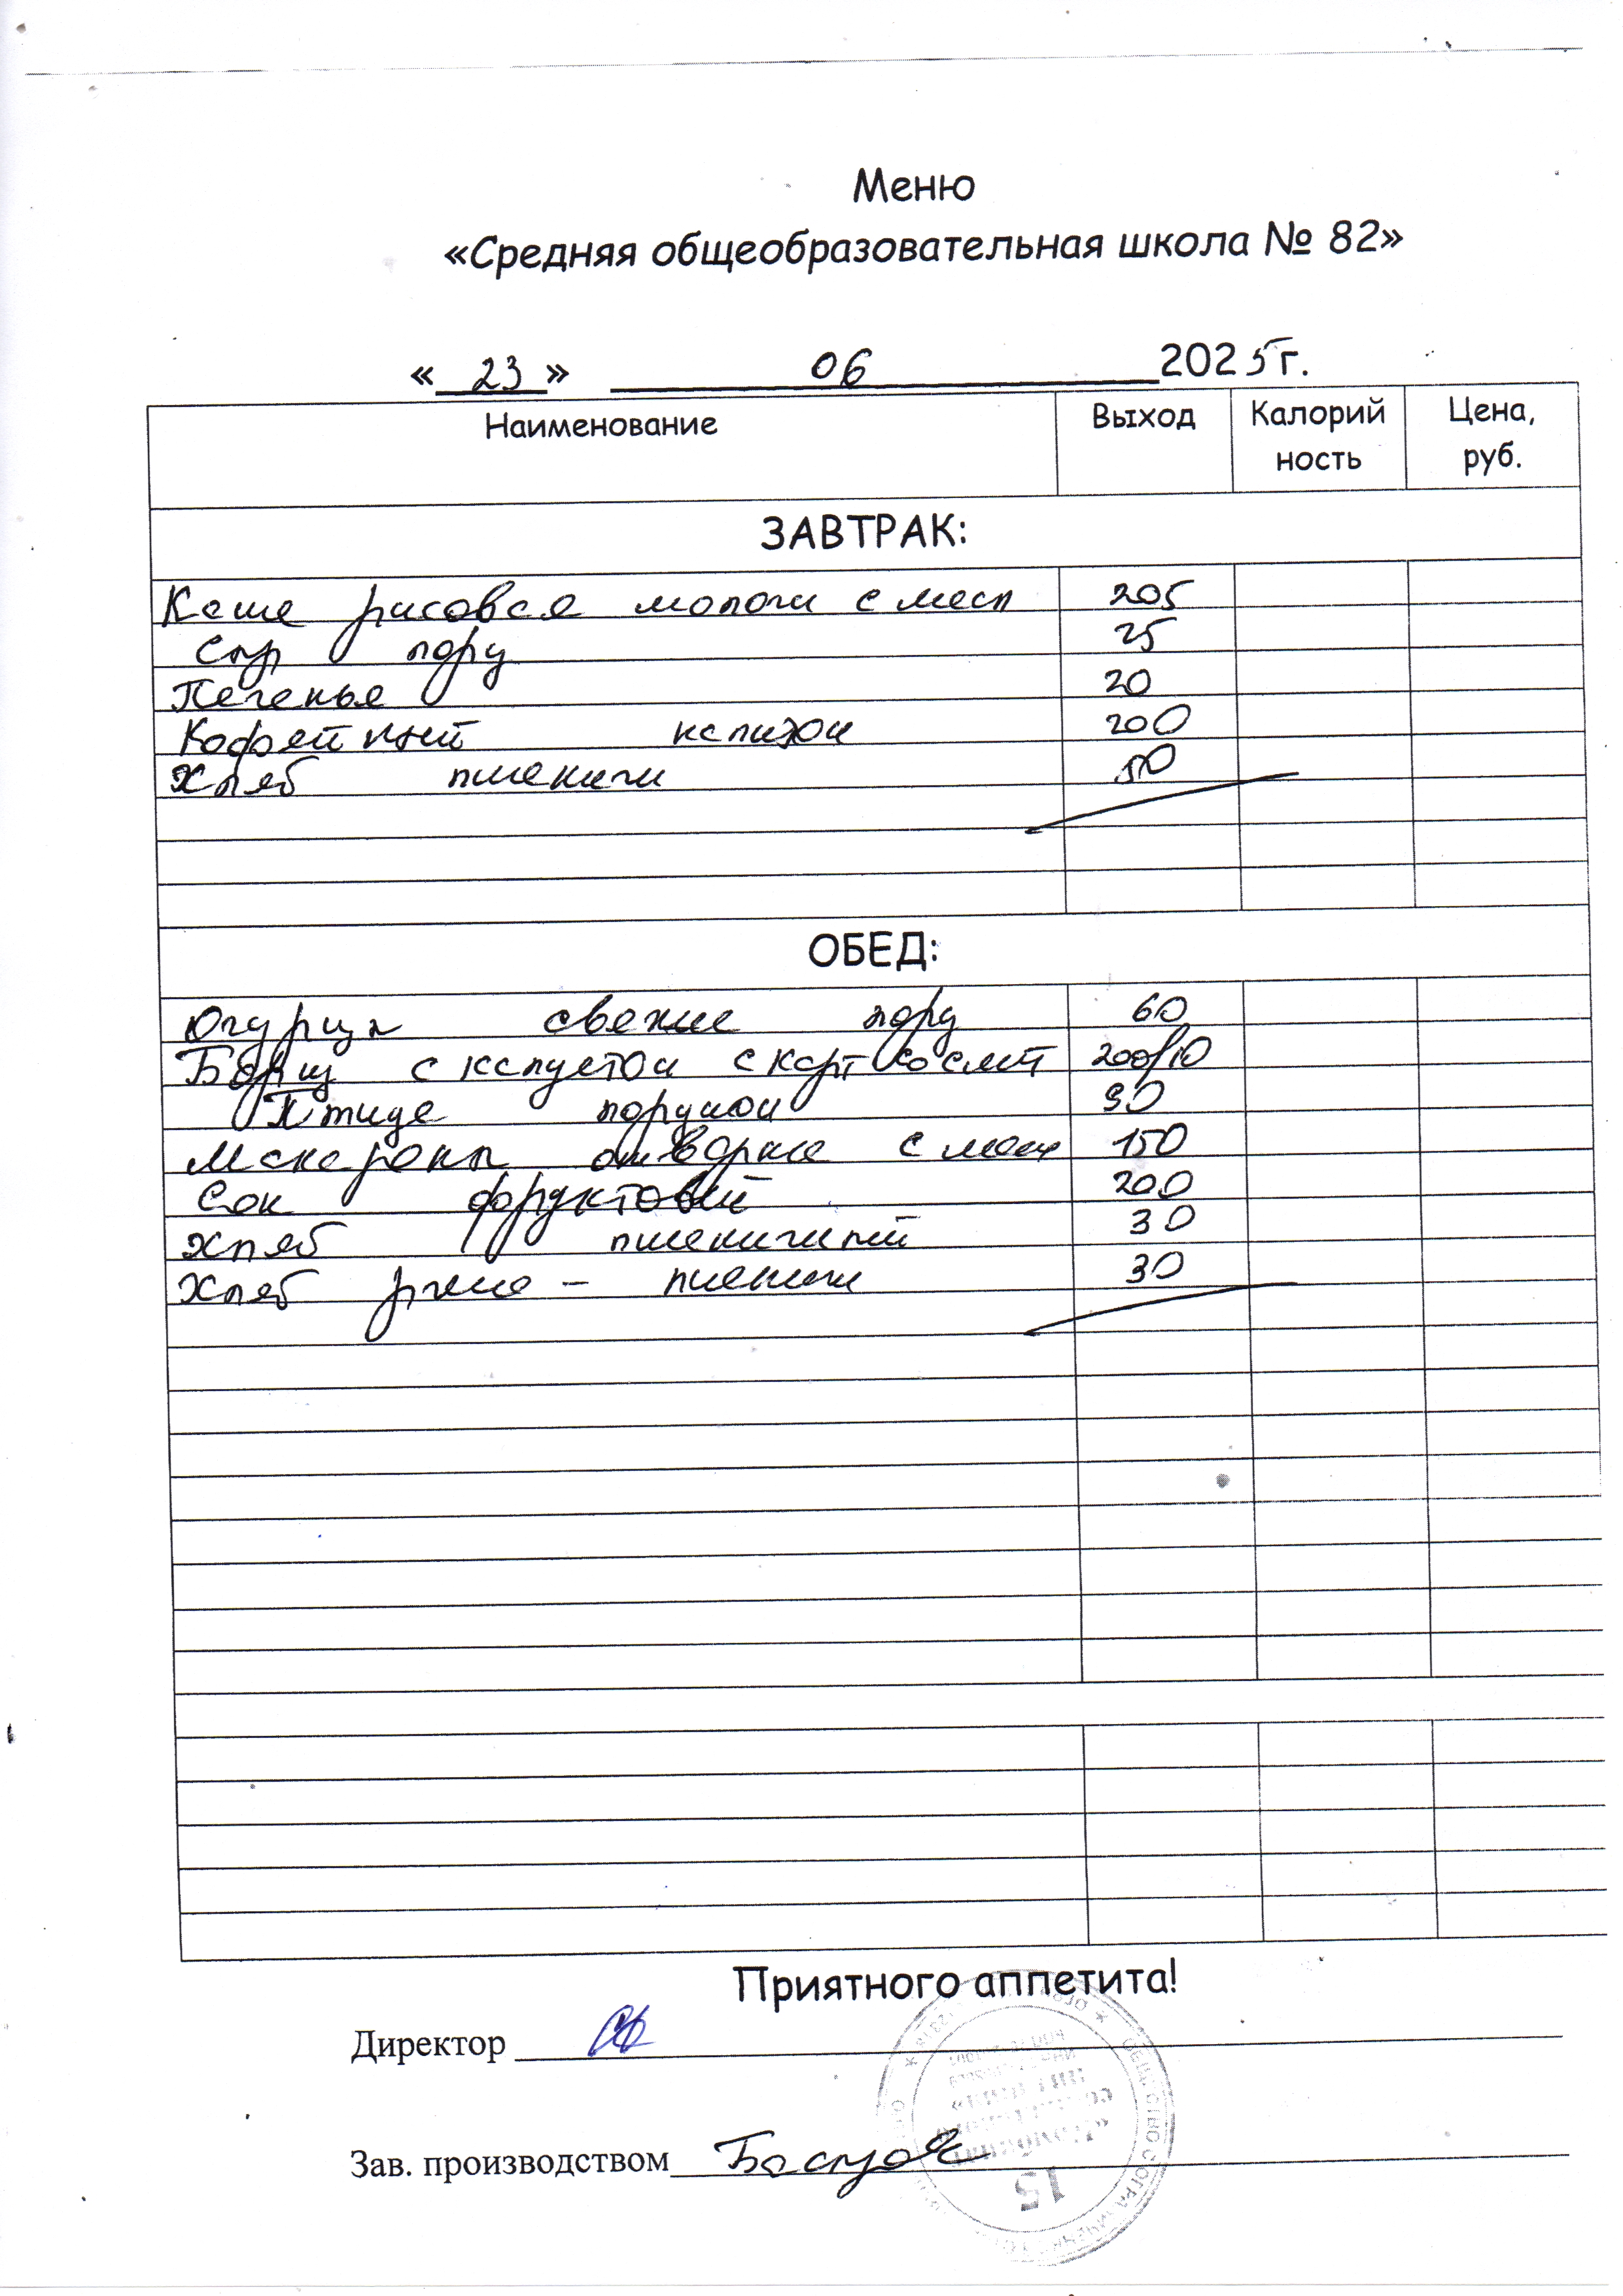 Меню
«Средняя общеобразовательная школа № 82»
« 23 » 06 2025 г.
Наименование Выход Калорий Цена,
ность руб.
ЗАВТРАК:
Каша рисовая молочн с масл 205
Сыр порц 25
Печенье 20
Кофейный напиток 200
Хлеб пшеничн 50
ОБЕД:
Огурцы свежие порц 60
Борщ с капустой с карт со смт 200/10
Птица порцион 90
Макароны отварные с масл 150
Сок фруктовый 200
Хлеб пшеничный 30
Хлеб ржано - пшенич 30
Приятного аппетита!
Директор
Зав. производством
15